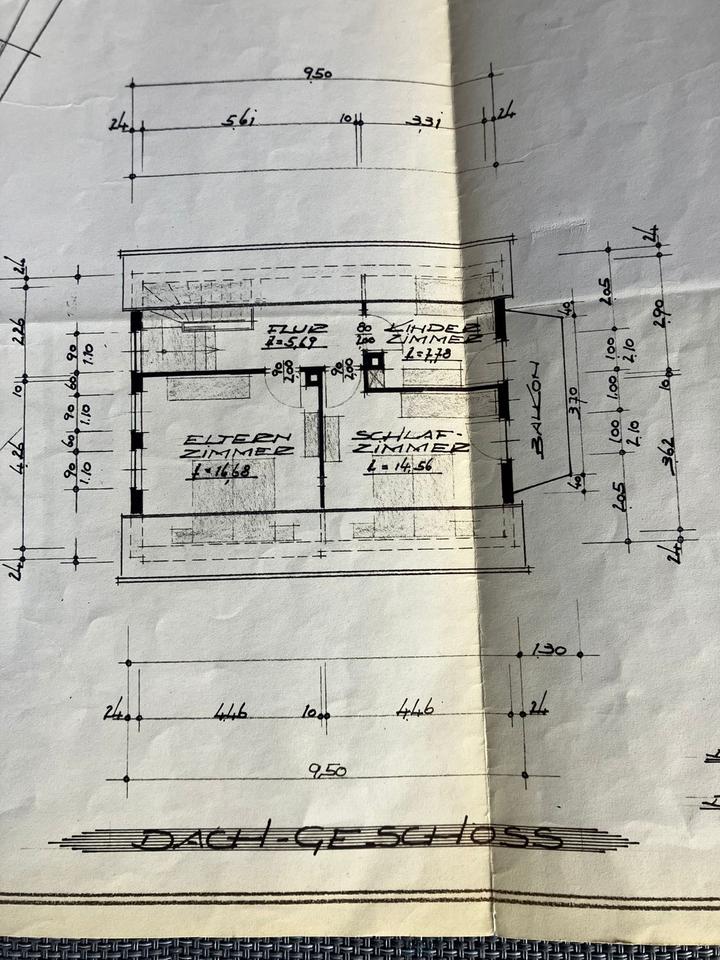 9.50
24 5.61 10 3.31 24
24
226
10
4.26
24
90 1.10
60
90 1.10
60
90 1.10
FLUR
f=5,69
80
200
KINDER
ZIMMER
f=7,78
90
200
90
200
ELTERN
ZIMMER
f=16,68
SCHLAF-
ZIMMER
f=14,56
BALKON
40
3.70
40
205
100 2.10
1.00
100 2.10
205
24
2.90
10
3.62
24
1.30
24 4.46 10 4.46 24
9,50
DACH-GESCHOSS